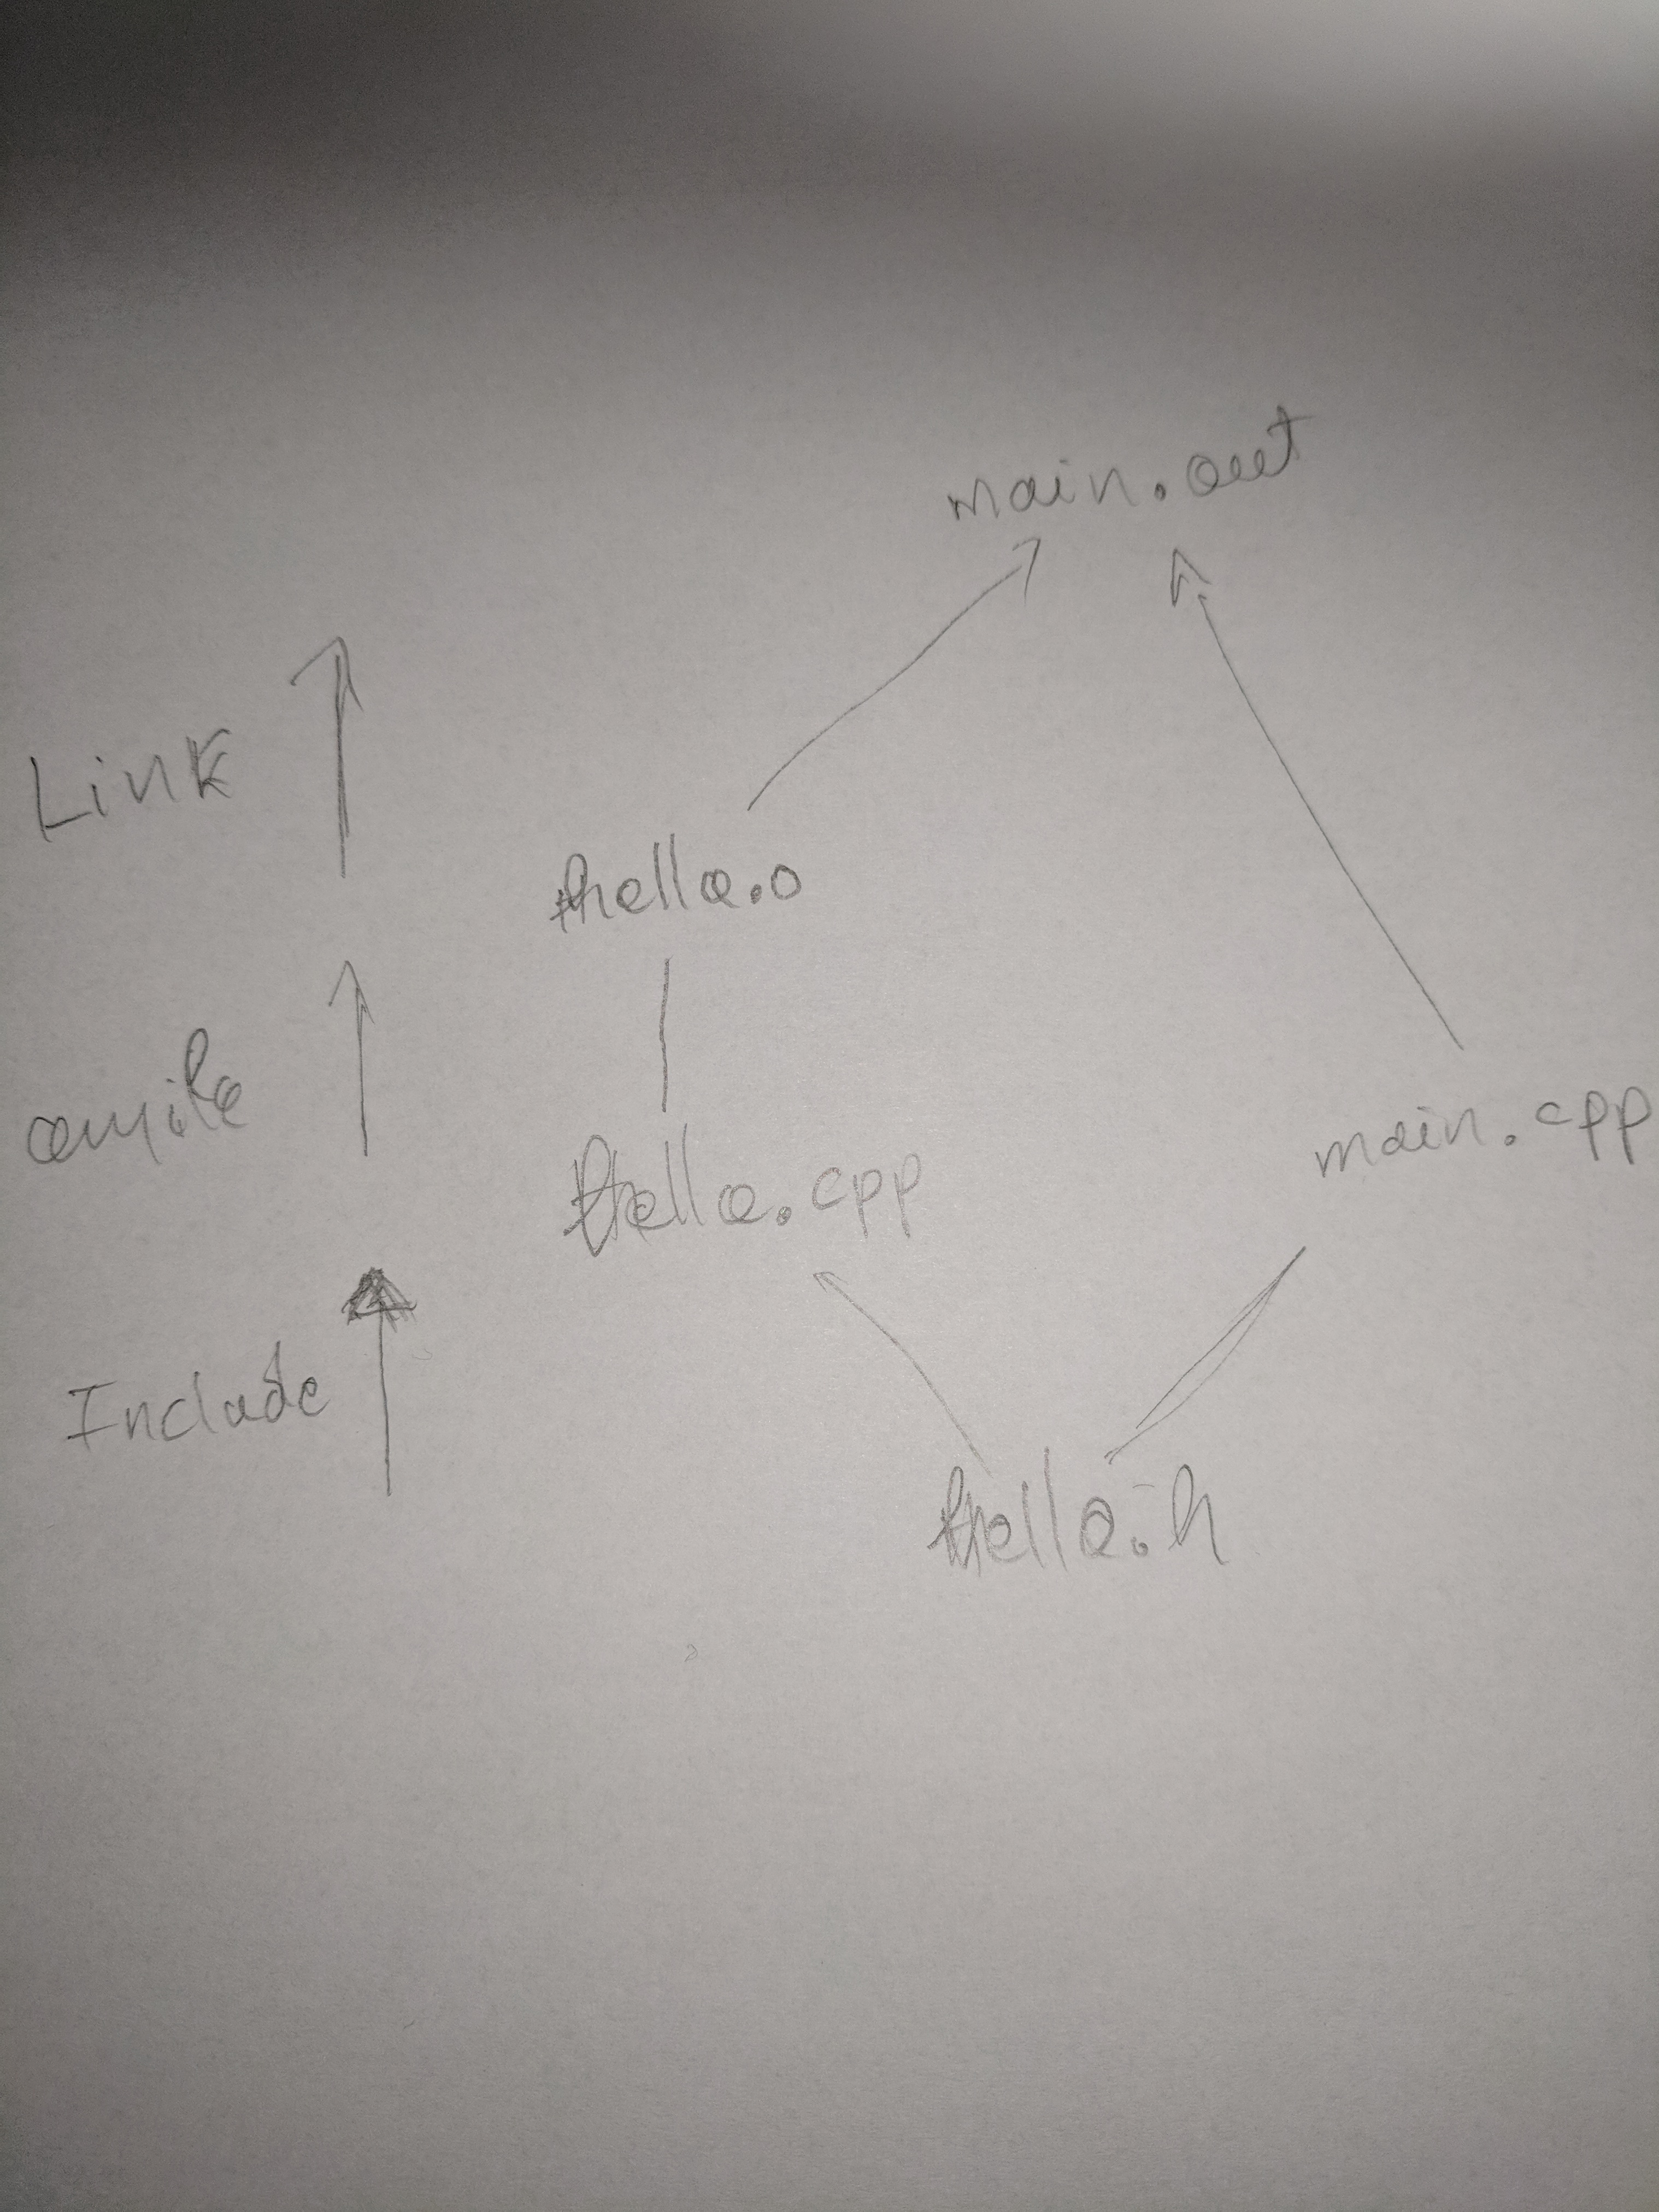 main.out
Link
hello.o
compile
hello.cpp
main.cpp
Include
hello.h